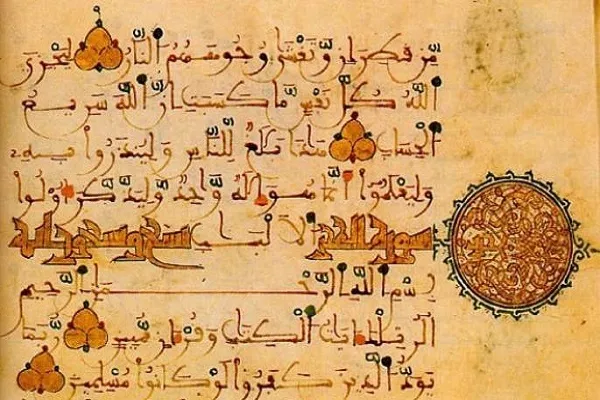 مِّن قَطِرَانٍ وَتَغْشَىٰ وُجُوهَهُمُ النَّارُ لِيَجْزِيَ
اللَّهُ كُلَّ نَفْسٍ مَّا كَسَبَتْ إِنَّ اللَّهَ سَرِيعُ
الْحِسَابِ هَٰذَا بَلَٰغٌ لِّلنَّاسِ وَلِيُنذَرُوا بِهِ
وَلِيَعْلَمُوا أَنَّمَا هُوَ إِلَٰهٌ وَٰحِدٌ وَلِيَذَّكَّرَ أُولُوا
سورة الحجر الْأَلْبَٰبِ تسع وتسعون اية
بِسْمِ اللَّهِ الرَّحْمَٰنِ الرَّحِيمِ
الر تِلْكَ ءَايَٰتُ الْكِتَٰبِ وَقُرْءَانٍ مُّبِينٍ رُّبَمَا
يَوَدُّ الَّذِينَ كَفَرُوا لَوْ كَانُوا مُسْلِمِينَ